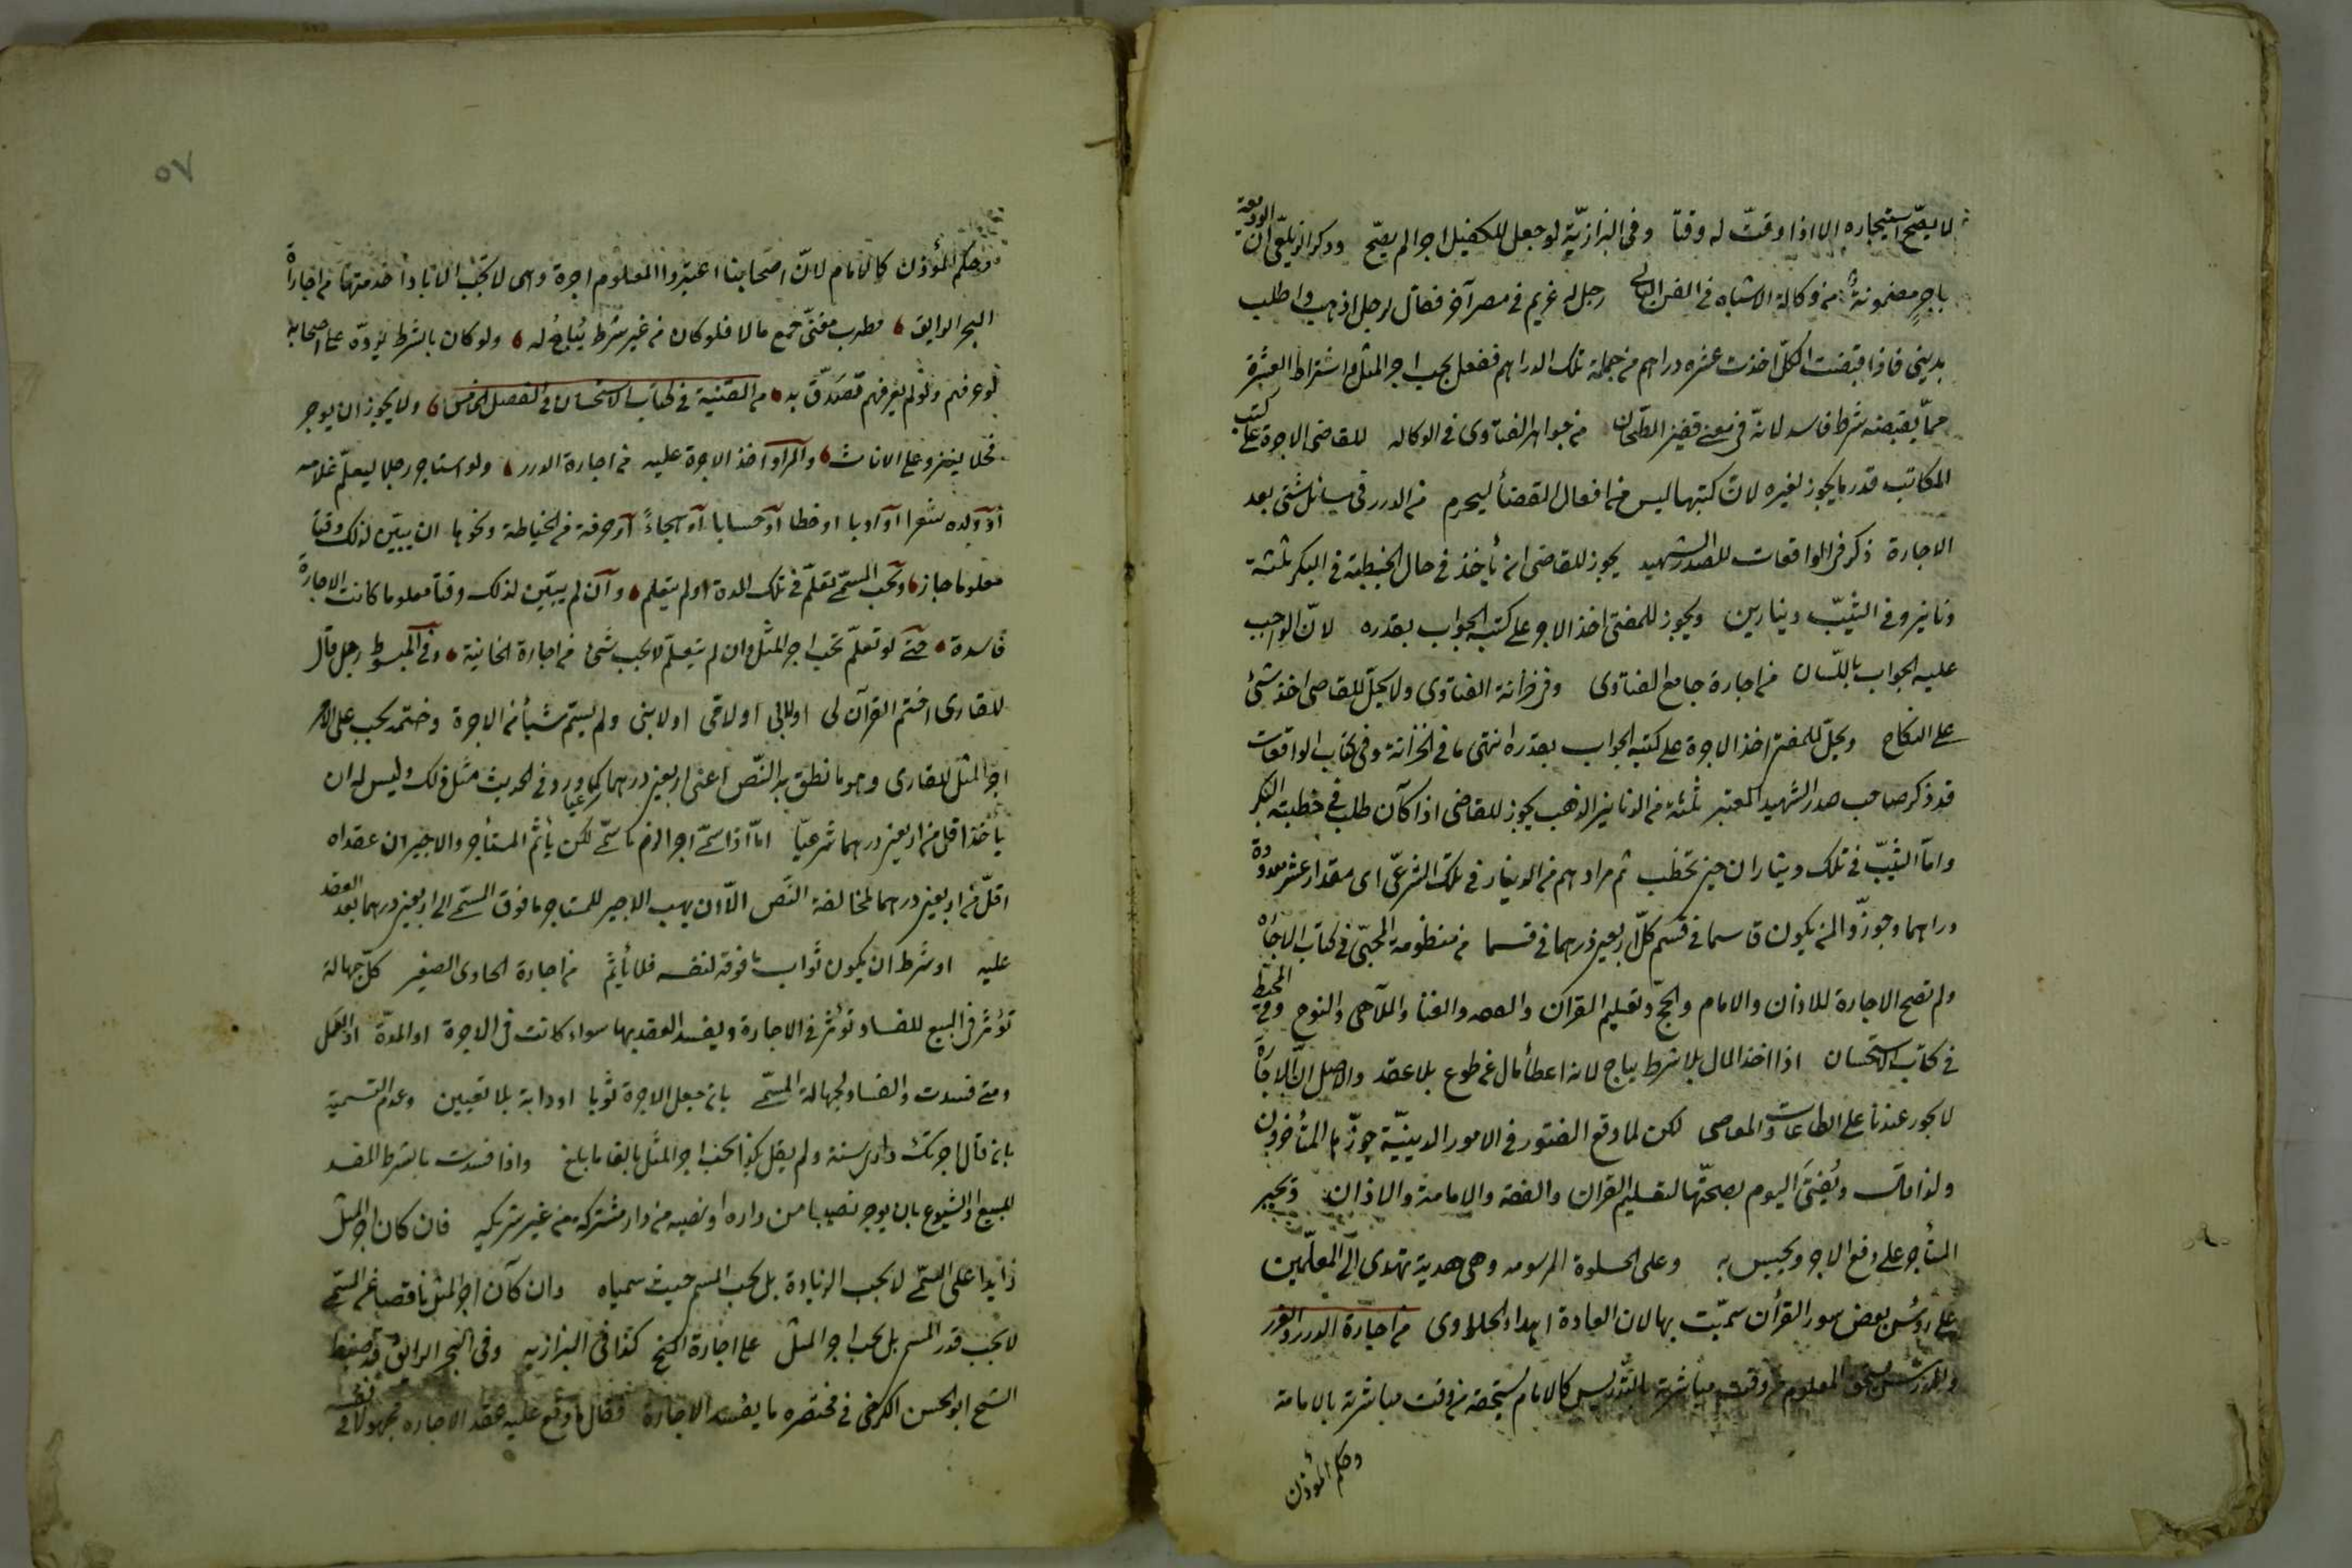 لا يصح استيجاره الا اذا وقت له وقتا وفى البزازية لو جعل للكفيل اجرا لم يصح وذكر الزيلعى ان الوديعة
باجر مضمونة من وكالة الاشباه فى الفن الثانى رجل له غريم فى مصر آخر فقال لرجل اذهب واطلب
بدينى فاذا قبضت الكل اخذت عشرة دراهم من جملة تلك الدراهم ففعل يجب اجر المثل واشتراط العشرة
مما يقبضه شرط فاسد لانه فى معنى قفيز الطحان من جواهر الفتاوى فى الوكالة للقاضى الاجرة على كتب
المكاتب قدر ما يجوز لغيره لان كتبها ليس من افعال القضأ ليحرم من الدرر فى مسائل شتى بعد
الاجارة ذكر فى الواقعات للصدر الشهيد يجوز للقاضى ان يأخذ فى حال الخطبة فى البكر ثلثة
دنانير وفى الثيب دينارين ويجوز للمفتى اخذ الاجر على كتبه الجواب بقدره لان الواجب
عليه الجواب باللسان من اجارة جامع الفتاوى وفى خزانة الفتاوى ولا يحل للقاضى اخذ شئ
على النكاح ويحل للمفتى اخذ الاجرة على كتبه الجواب بقدره انتهى ما فى الخزانة وفى كتاب الواقعات
قد ذكر صاحب صدر الشهيد المعتبر ثلثة من الدنانير الذهب يجوز للقاضى اذا كان طلب فى خطبته البكر
واما الثيب فى تلك ديناران حين تخطب ثم مرادهم من الدينار فى تلك الشرعى اى مقدار عشر معدودة
دراهما وجوزوا لمن يكون قاسما فى قسم كل اربعين درهما فى قسما من منظومة المحبى فى كتاب الاجاره
ولم تصح الاجارة للاذان والامام والحج وتعليم القرآن والفقه والغنا والملاهى والنوح وفى المحيط
فى كتاب الاستحسان اذا اخذ المال بلا شرط يباح لانه اعطأ مال عن طوع بلا عقد والاصل ان الاجارة
لا يجوز عندنا على الطاعات والمعاصى لكن لما وقع الفتور فى الامور الدينية جوزها المتأخرون
ولذا قال ويفتى اليوم بصحتها لتعليم القران والفقه والامامة والاذان ويجبر
المستأجر على دفع الاجر ويحبس به وعلى الحلوة المرسومه وهى هدية تهدى الى المعلمين
على رؤس بعض سور القرأن سميت بها لان العادة اهداء الحلاوى من اجارة الدرر والغرر
والمدرس يستحق المعلوم من وقت مباشرته بالتدريس كالامام يستحقه من وقت مباشرته بالامامة
وحكم المؤذن
٥٧
وحكم المؤذن كالامام لان اصحابنا اعتبروا المعلوم اجرة وهى لا تجب الا بادأ خدمتها من اجارة
البحر الرايق مطرب مغنى جمع مالا فلو كان من غير شرط يباح له ولو كان بالشرط يرده على اصحابه
لو عرفهم ولو لم يعرفهم تصدق به من القنية فى كتاب الاستحسان فى الفصل الخامس ولا يجوز ان يوجر
فحلا لينزو على الاناث والمراد اخذ الاجرة عليه من اجارة الدرر ولو استاجر رجلا ليعلم غلامه
او ولده شعرا او ادبا او خطا او حسابا او هجاء او حرفة من الخياطة ونحوها ان يبين لذلك وقتا
معلوما جاز ويجب المسمى تعلم فى تلك المدة او لم يتعلم وان لم يبين لذلك وقتا معلوما كانت الاجارة
فاسدة حتى لو تعلم يجب اجر المثل وان لم يتعلم لا يجب شئ من اجارة الخانية وفى المبسوط رجل قال
للقارى اختم القرآن لى او لابى او لامى او لابنى ولم يسم شيأ من الاجرة وختمه يجب على الامر
اجر المثل للقارى وهو ما نطق به النص اعنى اربعين درهما شرعيا كما ورد فى الحديث مثل ذلك وليس له ان
يأخذ اقل من اربعين درهما شرعيا اما اذا سمى اجرا لزم ما سمى لكن يأثم المستأجر والاجير ان عقداه
اقل من اربعين درهما لمخالفة النص الا ان يهب الاجير للمستاجر ما فوق المسمى الى اربعين درهما بعد العقد
عليه او شرط ان يكون ثواب ما فوقه لنفسه فلا يأثم من اجارة الحاوى الصغير كل جهالة
تؤثر فى البيع للفساد تؤثر فى الاجارة ويفسد العقد بها سواء كانت فى الاجرة او المدة او العمل
ومتى فسدت والفساد لجهالة المسمى بان جعل الاجرة ثوبا او دابة بلا تعيين وعدم التسمية
بان قال اجرتك دارى سنة ولم يقل بكذا يجب اجر المثل بالغا ما بلغ واذا فسدت بالشرط المفسد
للبيع والشيوع بان يوجر نصيبا من داره او نصيبه من دار مشتركة من غير شريكه فان كان اجر المثل
زايدا على المسمى لا يجب الزيادة بل يجب المسمى حيث سمياه وان كان اجر المثل ناقصا عن المسمى
لا يجب قدر المسمى بل يجب اجر المثل كذا فى البزازيه وفى البحر الرائق قد ضبط
الشيخ ابو الحسن الكرخى فى مختصره ما يفسد الاجارة فقال ما وقع عليه عقد الاجاره مجهولا فى نفسه